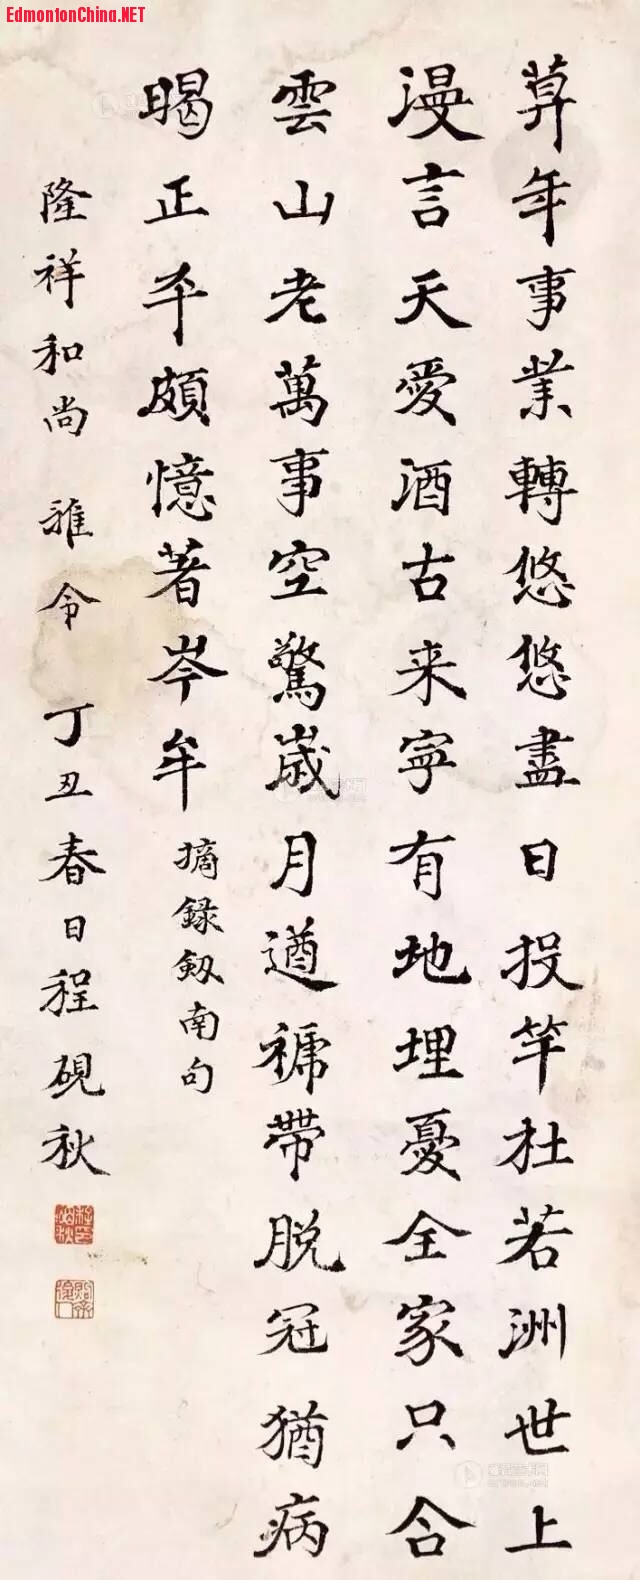 EdmontonChina.NET
莫年事業轉悠悠盡日投竿杜若洲世上
漫言天愛酒古来寧有地埋憂全家只合
雲山老萬事空驚歲月遒褫帶脱冠猶病
暍正平頗憶著岑牟 摘録劔南句
隆祥和尚 雅令 丁丑春日程硯秋